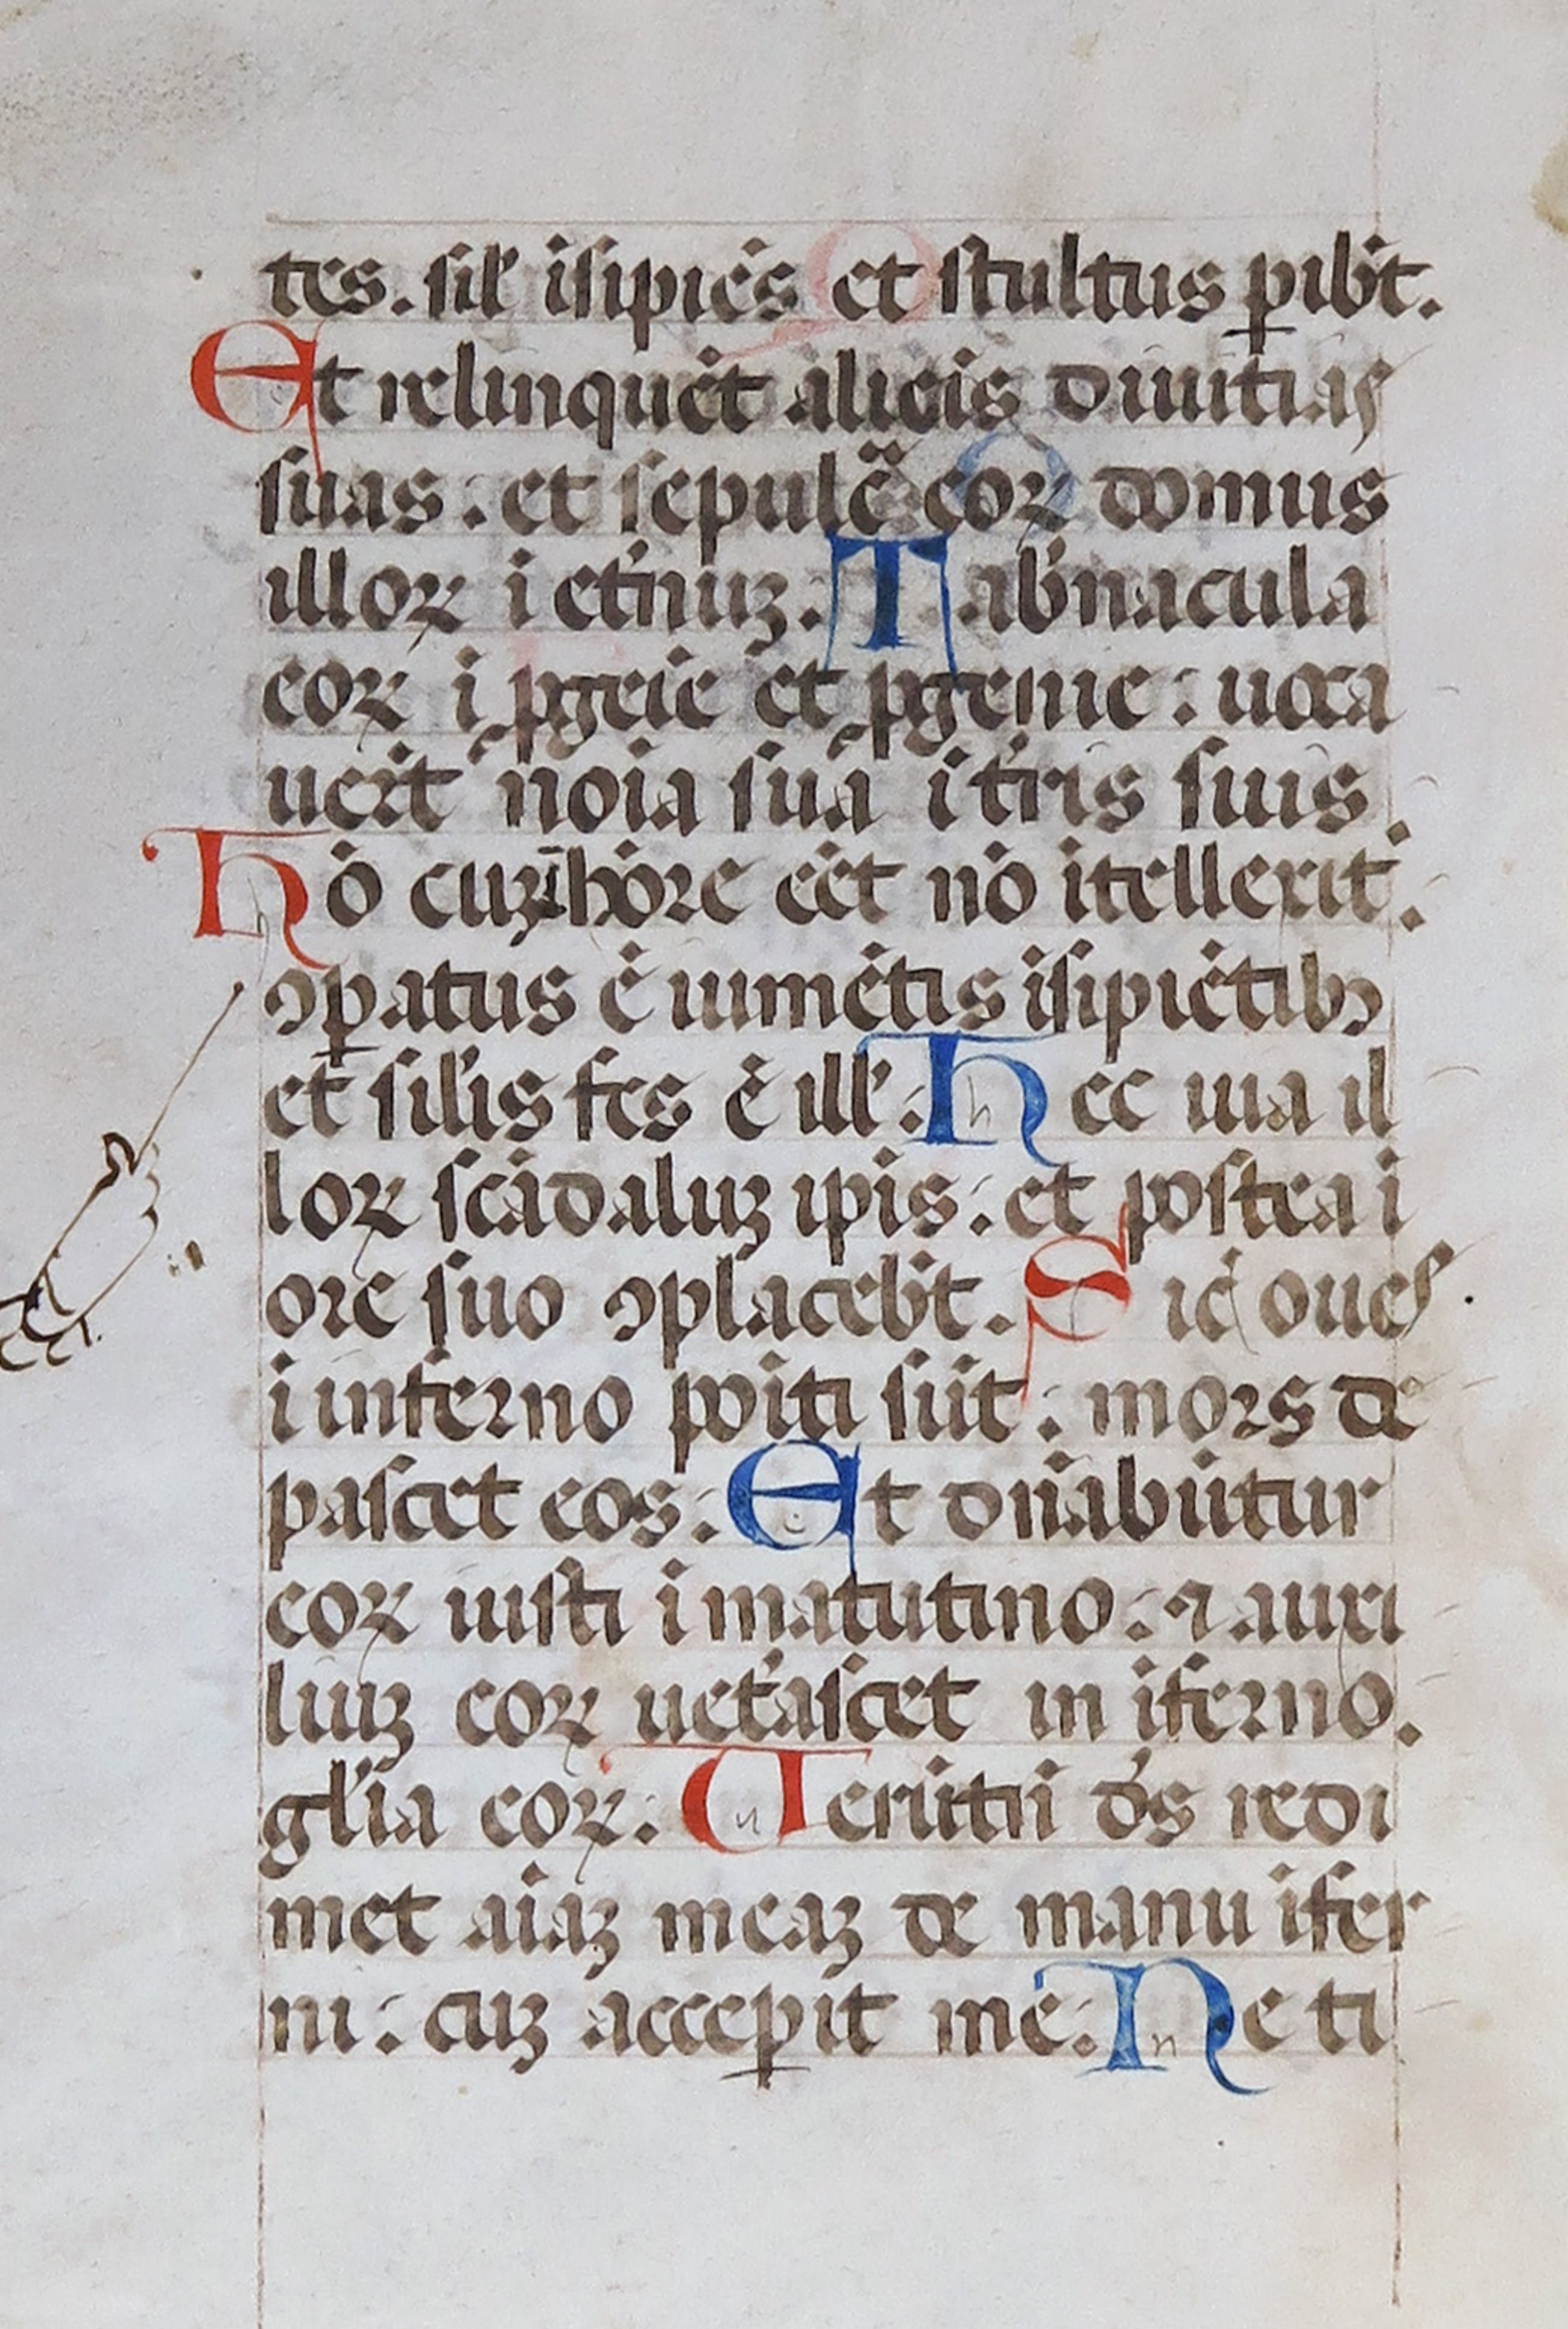 tes. sil' isipiēs et stultus ꝑibt̄.
Et relinquēt alieis diuitias
suas: et sepulc̄ eoꝝ domus
illoꝝ ī et'nuꝫ. Tab'nacula
eoꝝ ī ꝓgēie et ꝓgenie: uoca
uer̄t noīa suā ī t'ris suis.
Hō cuꝫ ī hōre eēt nō ītellexit.
ꝯꝑatus ē iumētis īsipiētibꝫ
et sil'is fcs ē ill'. Hec uia il
loꝝ scādaluꝫ ip̄is: et postea ī
ore suo ꝯplacebt̄. Sic̄ oues
ī inferno poīti sūt: mors de
pascet eos: Et dn̄abūtur
eoꝝ iusti ī matutino: ⁊ auxi
liuꝫ eoꝝ uet'ascet in īferno.
gl'ia eoꝝ: Uerūtn̄ d's redi
met aīaꝫ meaꝫ de manu īfer
ni: cuꝫ acceꝑit mē. Ne ti